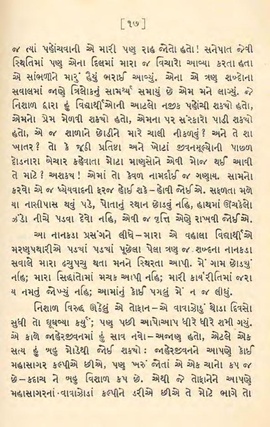 [ ૧૭ ]
જ ત્યાં પહોંચવાની એ મારી પણ રાહ જોતો હતો! સનેપાત જેવી
સ્થિતિમાં પણ એના દિલમાં મારા જ વિચારો આવ્યા કરતા હતા
એ સાંભળીને મારું હૈયું ભરાઈ આવ્યું. એના એ ત્રણ શબ્દોના
સવાલમાં જાણે ત્રિલોકનું સામર્થ્ય સમાયું છે એમ મને લાગ્યું. જે
નિશાળ દ્વારા હું વિદ્યાર્થીઓની આટલો નજીક પહોંચી શક્યો હતો,
એમનો પ્રેમ મેળવી શક્યો હતો, એમના પર સંસ્કારો પાડી શક્યો
હતો, એ જ શાળાને છોડીને મારે ચાલી નીકળવું? અને તે શા
ખાતર? તો કે જૂઠી પ્રતિષ્ઠા અને ખોટાં જીવનમૂલ્યોની પાછળ
દોડનારા બેચાર કહેવાતા મોટા માણસોને એવી મોજ થઈ આવી
તે માટે? અશક્ય! એમાં તો કેવળ નામર્દાઈ જ ગણાય. સામનો
કરવો એ જ ધ્યેયવાદની ફરજ હોઈ શકે–હોવી જોઈએ. સફળતા મળે
યા નાસીપાસ થવું પડે, પોતાનું સ્થાન છોડવું નહિ, હાથમાં ઊંચકેલો
ઝંડો નીચે પડવા દેવો નહિ, એવી જ વૃત્તિ એણે રાખવી જોઈએ.
આ નાનકડા પ્રસંગને લીધે—મારા એ વહાલા વિદ્યાર્થીએ
મરણપથારીએ પડ્યાં પડ્યાં પૂછેલા પેલા ત્રણ જ શબ્દના નાનકડા
સવાલે મારા હચુપચુ થતા મનને સ્થિરતા આપી. મેં ગામ છોડ્યું
નહિ; મારા સિદ્ધાંતોમાં મચક આપી નહિ; મારી કાર્યરીતિમાં જરા
ય નમતું જોખ્યું નહિ; આમાંનું કોઈ પગલું મેં ન જ લીધું.
નિશાળ વિરુદ્ધ ઊઠેલું એ તોફાન—એ વાવાઝોડું થોડા દિવસો
સુધી તો ઘૂઘવ્યા કર્યું; પણ પછી આપોઆપ ધીરે ધીરે શમી ગયું.
એ કાળે જાહેરજીવનમાં હું સાવ નવો—અજાણ હતો, એટલે એક
સત્ય હું નહુ મોડેથી જોઈ શક્યો: જાહેરજીવનને આપણે કોઈ
મહાસાગર કલ્પીએ છીએ, પણ ખરું જોતાં એ એક ચાનો કપ જ
છે—કદાચ ને બહુ વિશાળ કપ છે. એથી જે તોફાનોને આપણે
મહાસાગરનાં વાવાઝોડાં કલ્પીને ડરીએ છીએ તે મોટે ભાગે તો